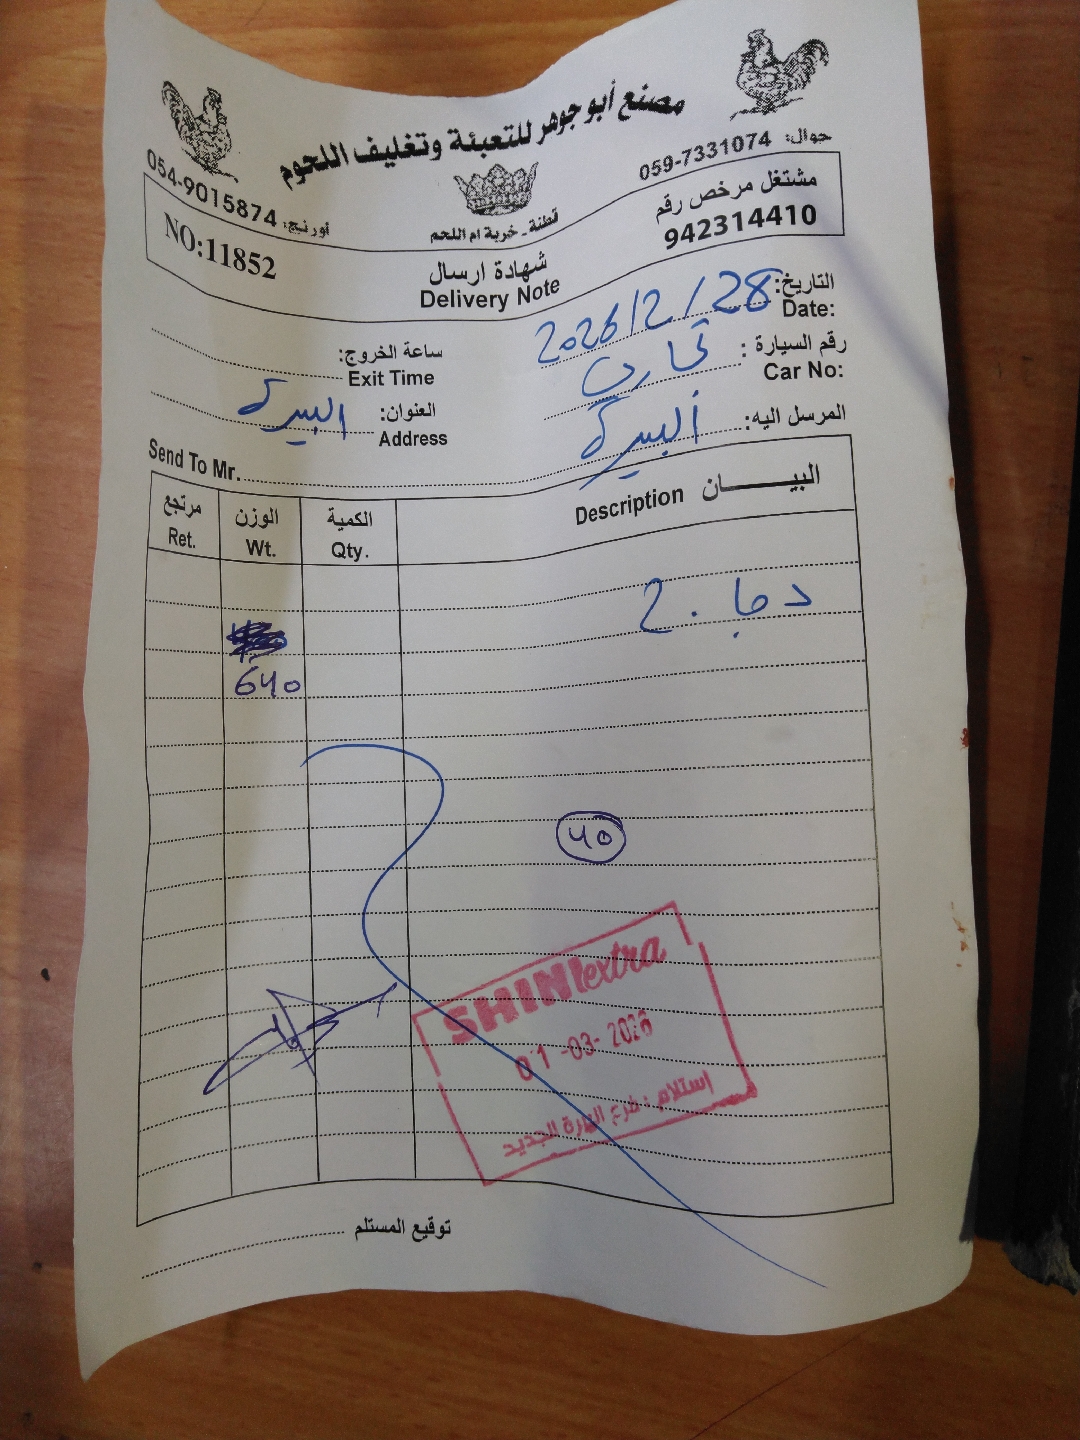 مصنع أبو جوهر للتعبئة وتغليف اللحوم
جوال: 059-7331074
أورنج: 054-9015874
قطنة - خربة ام اللحم
مشتغل مرخص رقم
942314410
NO:11852
شهادة ارسال
Delivery Note
التاريخ: 2026/2/28
Date:
ساعة الخروج:
Exit Time
رقم السيارة:
Car No:
العنوان: البيرة
Address
المرسل اليه: البيرة
Send To Mr.
البيـــــــان Description
الكمية Qty.
الوزن Wt.
مرتجع Ret.
640
40
SHINI extra
01-03-2026
استلام: فرع البيرة الجديد
توقيع المستلم